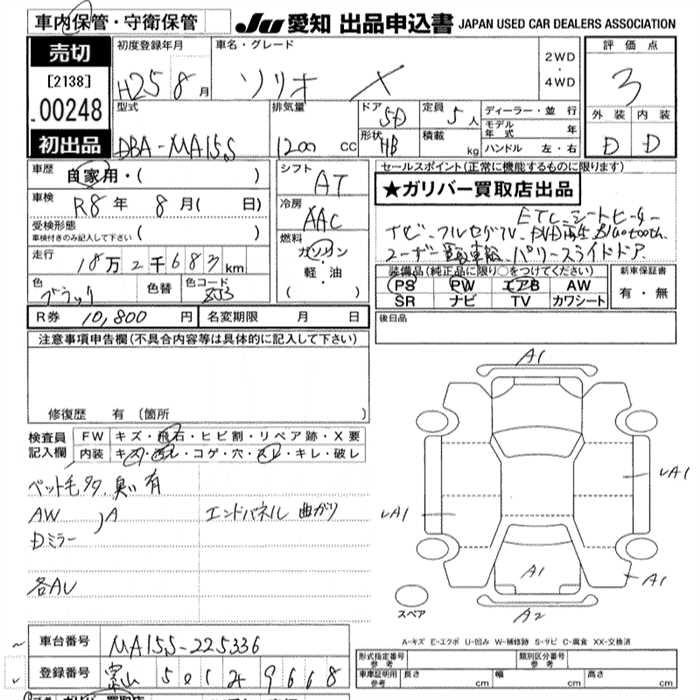 車内保管・守衛保管
JU 愛知 出品申込書 JAPAN USED CAR DEALERS ASSOCIATION
売切
[2138]
00248
初出品
初度登録年月
H25 8月
車名・グレード
ソリオ X
2WD
・
4WD
評価点
3
外装 内装
D D
型式
DBA-MA15S
排気量
1200 cc
ドア
5D
定員
5人
形状
HB
積載
kg
ディーラー・並行
モデル年式 年
ハンドル 左・右
車歴
自家用・( )
車検
R8年 8月( 日)
受検形態
車検付きのみ記入して下さい ( )
走行
18万2千683km
色
ブラック
色替
色コード
シフト
AT
冷房
AAC
燃料
ガソリン
・
軽・油
( )
R券 10,800 円
名変期限 月 日
セールスポイント(正常に機能するものに限ります)
★ガリバー買取店出品
ETC シートヒーター
ナビ フルセグTV DVD再生 Bluetooth
パワースライドドア
装備品(純正品に限り○をつけてください)
PS PW エアB AW
SR ナビ TV カワシート
新車保証書
有・無
後日品
注意事項申告欄(不具合内容等は具体的に記入して下さい)
修復歴 有(箇所
検査員
記入欄
FW キズ・飛石・ヒビ割・リペア跡・X要
内装 キズ・汚レ・コゲ・穴・スレ・キレ・破レ
ペット毛多タ、臭い有
AW
Dミラー
A
エンドパネル 曲がり
各AU
A1
A1
A1
A1
A1
A2
スペア
A-キズ E-エクボ U-凹み W-補修跡 S-サビ C-腐食 XX-交換済
車台番号
MA15S-225336
登録番号
富山 501 た 9668
形式指定番号
参考
類別区分番号
参考
車庫証明用
参考
長さ cm
幅 cm
高さ cm